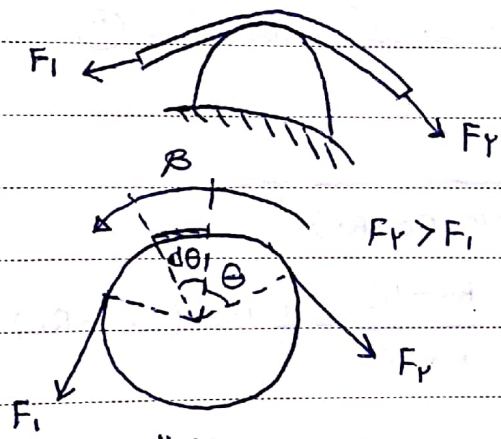 F₁
F۲
β
F۲ > F₁
dθ
θ
F۲
F₁